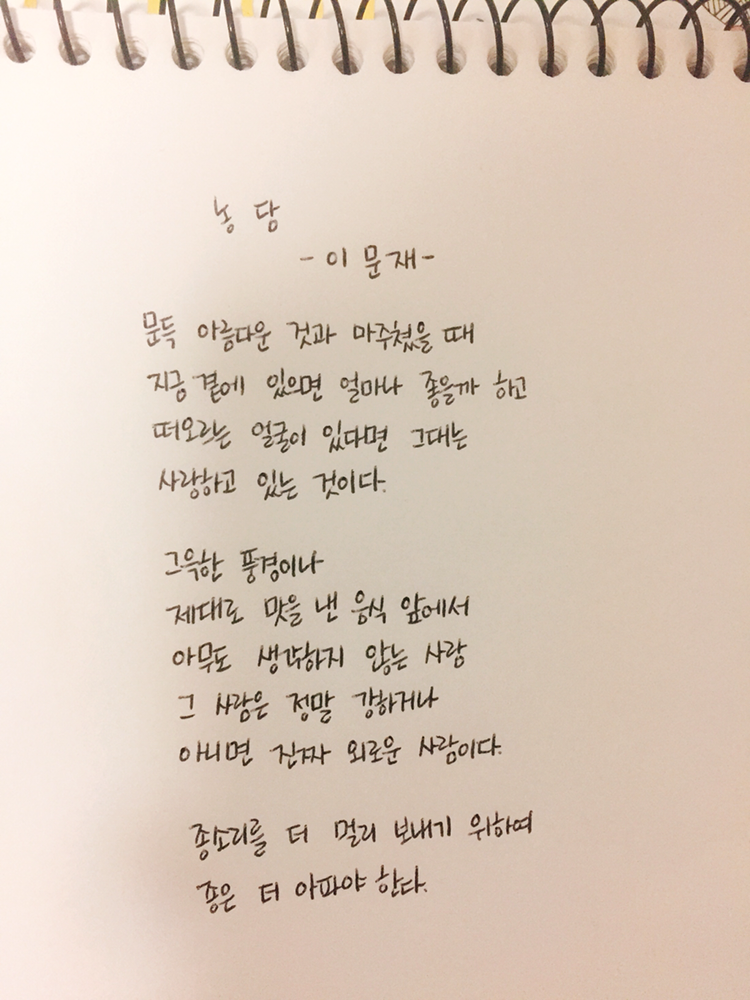 농담
- 이문재 -
문득 아름다운 것과 마주쳤을 때
지금 곁에 있으면 얼마나 좋을까 하고
떠오르는 얼굴이 있다면 그대는
사랑하고 있는 것이다.
그윽한 풍경이나
제대로 맛을 낸 음식 앞에서
아무도 생각하지 않는 사람
그 사람은 정말 강하거나
아니면 진짜 외로운 사람이다.
종소리를 더 멀리 보내기 위하여
종은 더 아파야 한다.